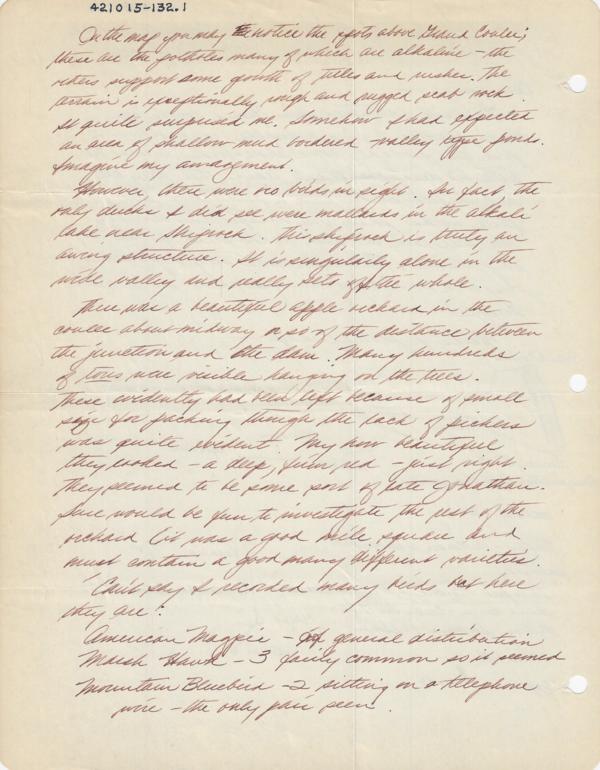 421015-132.1
On the map you may notice the spots above Grand Coulee;
these are the potholes many of which are alkaline - the
others support some growth of tules and rushes. The
terrain is exceptionally rough and rugged scab rock.
It quite surprised me. Somehow I had expected
an area of shallow mud bordered valley type ponds.
Imagine my amazement.
However, there were no birds in sight. In fact, the
only ducks I did see were mallards in the alkali
lake near Shiprock. This shiprock is truly an
awing structure. It is singularly alone in the
wide valley and really sets off the whole.
There was a beautiful apple orchard in the
coulee about midway or so of the distance between
the junction and the dam. Many hundreds
of tons were visible hanging on the trees.
These evidently had been left because of small
size for packing though the lack of pickers
was quite evident. My how beautiful
they looked - a deep, firm, red - just right.
They seemed to be some sort of late Jonathan.
Sure would be fun to investigate the rest of the
orchard (it was a good mile square and
must contain a good many different varieties.
Can't say I recorded many birds but here
they are:
American Magpie - of general distribution
Marsh Hawk - 3 fairly common so it seemed
Mountain Bluebird - 2 sitting on a telephone
wire - the only pair seen.